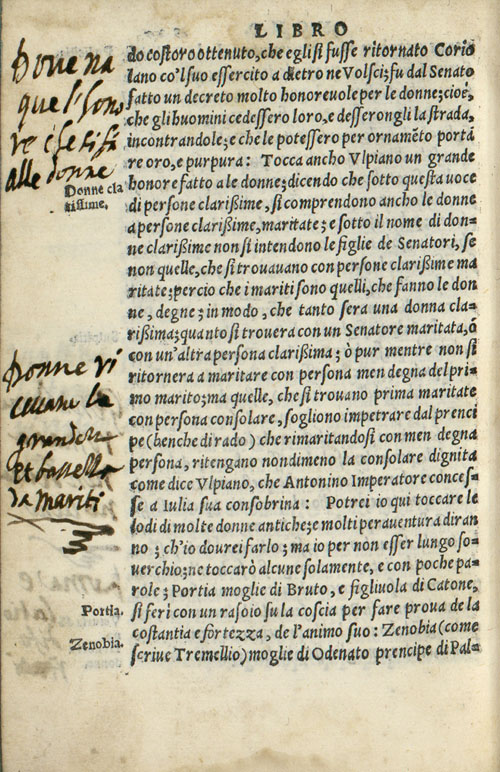 LIBRO
do costoro ottenuto, che egli si fusse ritornato Corio
lano co'l suo essercito a dietro ne Volsci; fu dal Senato
fatto un decreto molto honoreuole per le donne; cioè,
che gli huomini cedessero loro, e desserongli la strada,
incontrandole; e che le potessero per ornamēto portà
re oro, e purpura: Tocca ancho Vlpiano un grande
honore fatto a le donne; dicendo che sotto questa uoce
di persone clarißime, si comprendono ancho le donne
a persone clarißime, maritate; e sotto il nome di don-
ne clarißime non si intendono le figlie de Senatori, se
non quelle, che si trouauano con persone clarißime ma
ritate; percio che i mariti sono quelli, che fanno le don
ne, degne; in modo, che tanto sera una donna cla-
rißima; quanto si trouera con un Senatore maritata, ò
con un'altra persona clarißima; ò pur mentre non si
ritornera a maritare con persona men degna del pri-
mo marito; ma quelle, che si trouano prima maritate
con persona consolare, sogliono impetrare dal prenci
pe (benche di rado) che rimaritandosi con men degna
persona, ritengano nondimeno la consolare dignita
come dice Vlpiano, che Antonino Imperatore conces-
se a Iulia sua consobrina: Potrei io qui toccare le
lodi di molte donne antiche; e molti perauentura diran
no; ch'io dourei farlo; ma io per non esser lungo so-
uerchio; ne toccarò alcune solamente, e con poche pa-
role; Portia moglie di Bruto, e figliuola di Catone,
si ferì con un rasoio su la coscia per fare proua de la
costantia e fortezza, de l'animo suo: Zenobia (come
scriue Tremellio) moglie di Odenato prencipe di Pal-
Doue na
que l'hono
re che si fa
alle donne
Donne cla
rissime.
Donne ri
la
Et
da mariti
Portia.
Zenobia.